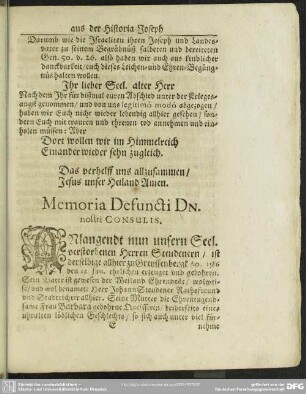 aus der Historia Joseph
Darumb wie die Israeliten ihren Joseph und Landes-
vater zu seinem Begräbnüß salbeten und bereiteten
Gen. 50. v. 26. also haben wir auch aus kindlicher
danckbarkeit/ euch dieses Leichen- und Ehren-Begäng-
nüs halten wollen.
Ihr lieber Seel. alter Herr
Nach dem Ihr für dißmal euren Abschied unter der Krieges-
angst genommen/ und von uns legitimô modô abgezogen/
haben wir Euch nicht wieder lebendig allhier gesehen/ son-
dern Euch mit trauren und threnen tod annehmen und ein-
holen müssen: Aber
Dort wollen wir im Himmelreich
Einander wieder sehn zugleich.
Das verhelff uns allzusammen/
Jesus unser Heiland Amen.
Memoria Defuncti DN.
nostri CONSULIS.
ANlangendt nun unsern Seel.
verstorbenen Herren Steudenern/ ist
der selbige allhier zu Greiffenberg
den Jan. ehelichen erzeuget und gebohren.
Sein Vater ist gewesen der Weiland Ehrenveste/ wolwei-
se/ und wol benamete Herr Johann Steudener Rathsfreund
und Stadtrichter allhier. Seine Mutter die Ehrentugend-
same Frau Barbara gebohrne beiderseits eines
uhralten löblichen Geschlechts/ so sich auch unter viel für-
E nehme